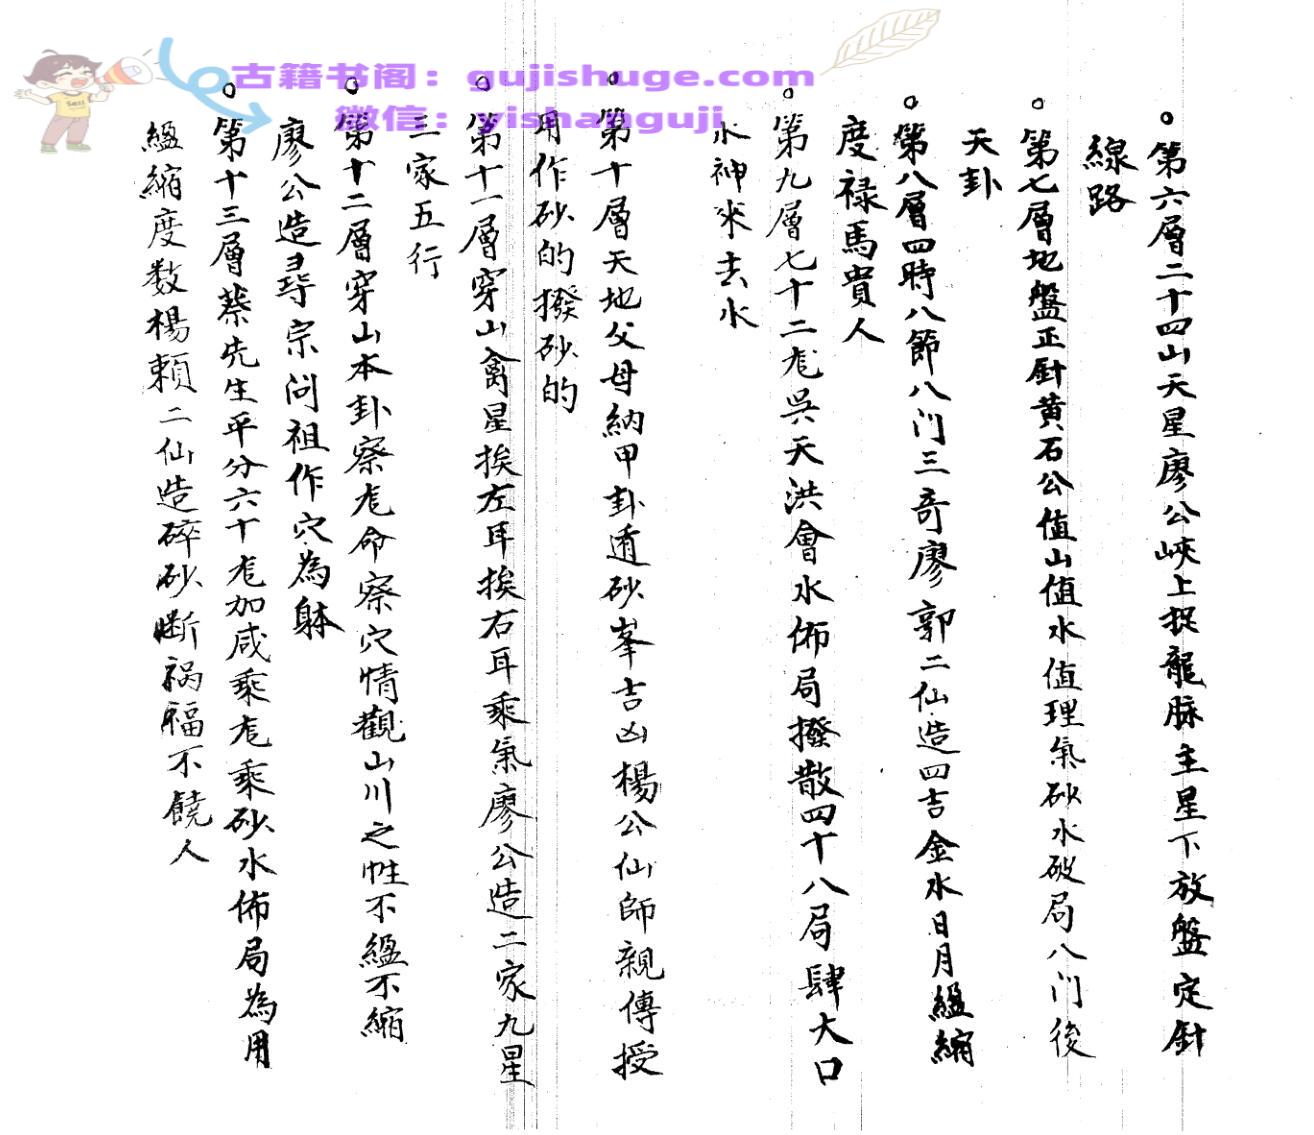 古籍书阁：gujishuge.com
微信：yishanguji
Smile
。第六層二十四山天星廖公峽上捉龍脉主星下放盤定針
線路
。第七層地盤正針黄石公值山值水值理氣砂水破局八门後
天卦
。第八層四時八節八门三奇廖郭二仙造四吉金水日月縕縮
度禄馬貴人
。第九層七十二龙吴天洪會水佈局撥散四十八局肆大口
水神来去水
。第十層天地父母納甲卦遁砂峯吉凶楊公仙師親傳授
用作砂的撥砂的
。第十一層穿山禽星挨左耳挨右耳乘氣廖公造二家九星
三家五行
。第十二層穿山本卦察龙命察穴情觀山川之性不縕不縮
廖公造尋宗问祖作穴為躰
。第十三層蔡先生平分六十龙加咸乘龙乘砂水佈局為用
縕縮度数楊賴二仙造碎砂断禍福不饒人